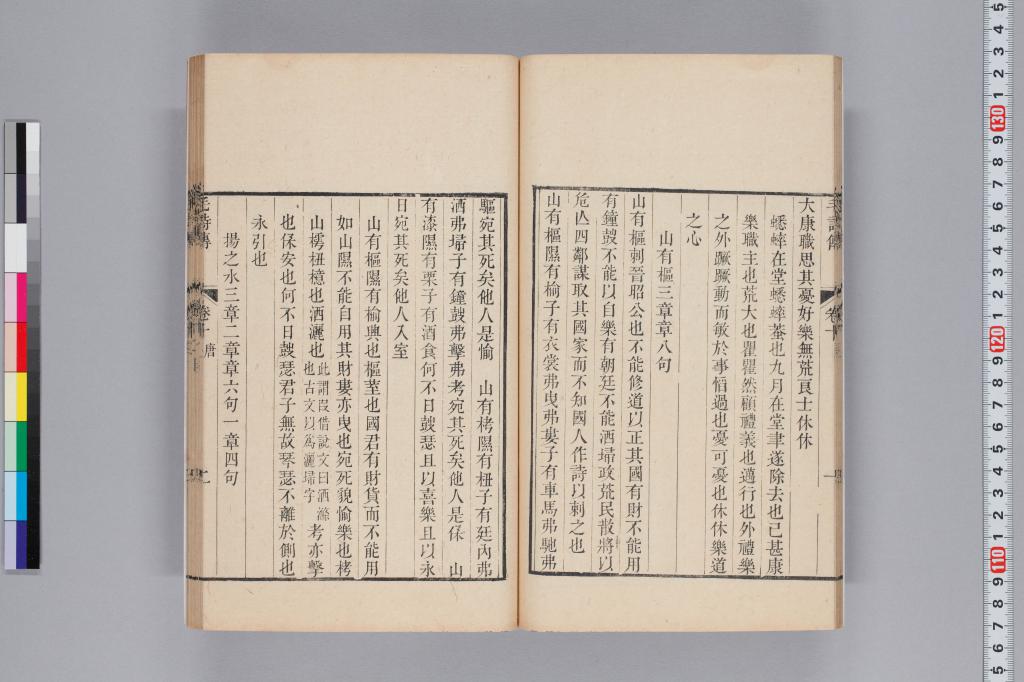 大康職思其憂好樂無荒良士休休
蟋蟀在堂蟋蟀蛬也九月在堂聿遂除去也已甚康
樂職主也荒大也瞿瞿然顧禮義也邁行也外禮樂
之外蹶蹶動而敏於事慆過也憂可憂也休休樂道
之心
山有樞三章章八句
山有樞刺晉昭公也不能修道以正其國有財不能用
有鐘鼓不能以自樂有朝廷不能洒埽政荒民散將以
危亾四鄰謀取其國家而不知國人作詩以刺之也
山有樞隰有榆子有衣裳弗曳弗婁子有車馬弗馳弗
驅宛其死矣他人是愉 山有栲隰有杻子有廷內弗
洒弗埽子有鐘鼓弗擊弗考宛其死矣他人是保 山
有漆隰有栗子有酒食何不日鼓瑟且以喜樂且以永
日宛其死矣他人入室
山有樞隰有榆興也樞荎也國君有財貨而不能用
如山隰不能自用其財婁亦曳也宛死貌愉樂也栲
山樗杻檍也洒灑也此謂叚借說文曰洒滌也古文以爲灑埽字考亦擊
也保安也何不日鼓瑟君子無故琴瑟不離於側也
永引也
揚之水三章二章章六句一章四句
毛詩傳
卷十
唐